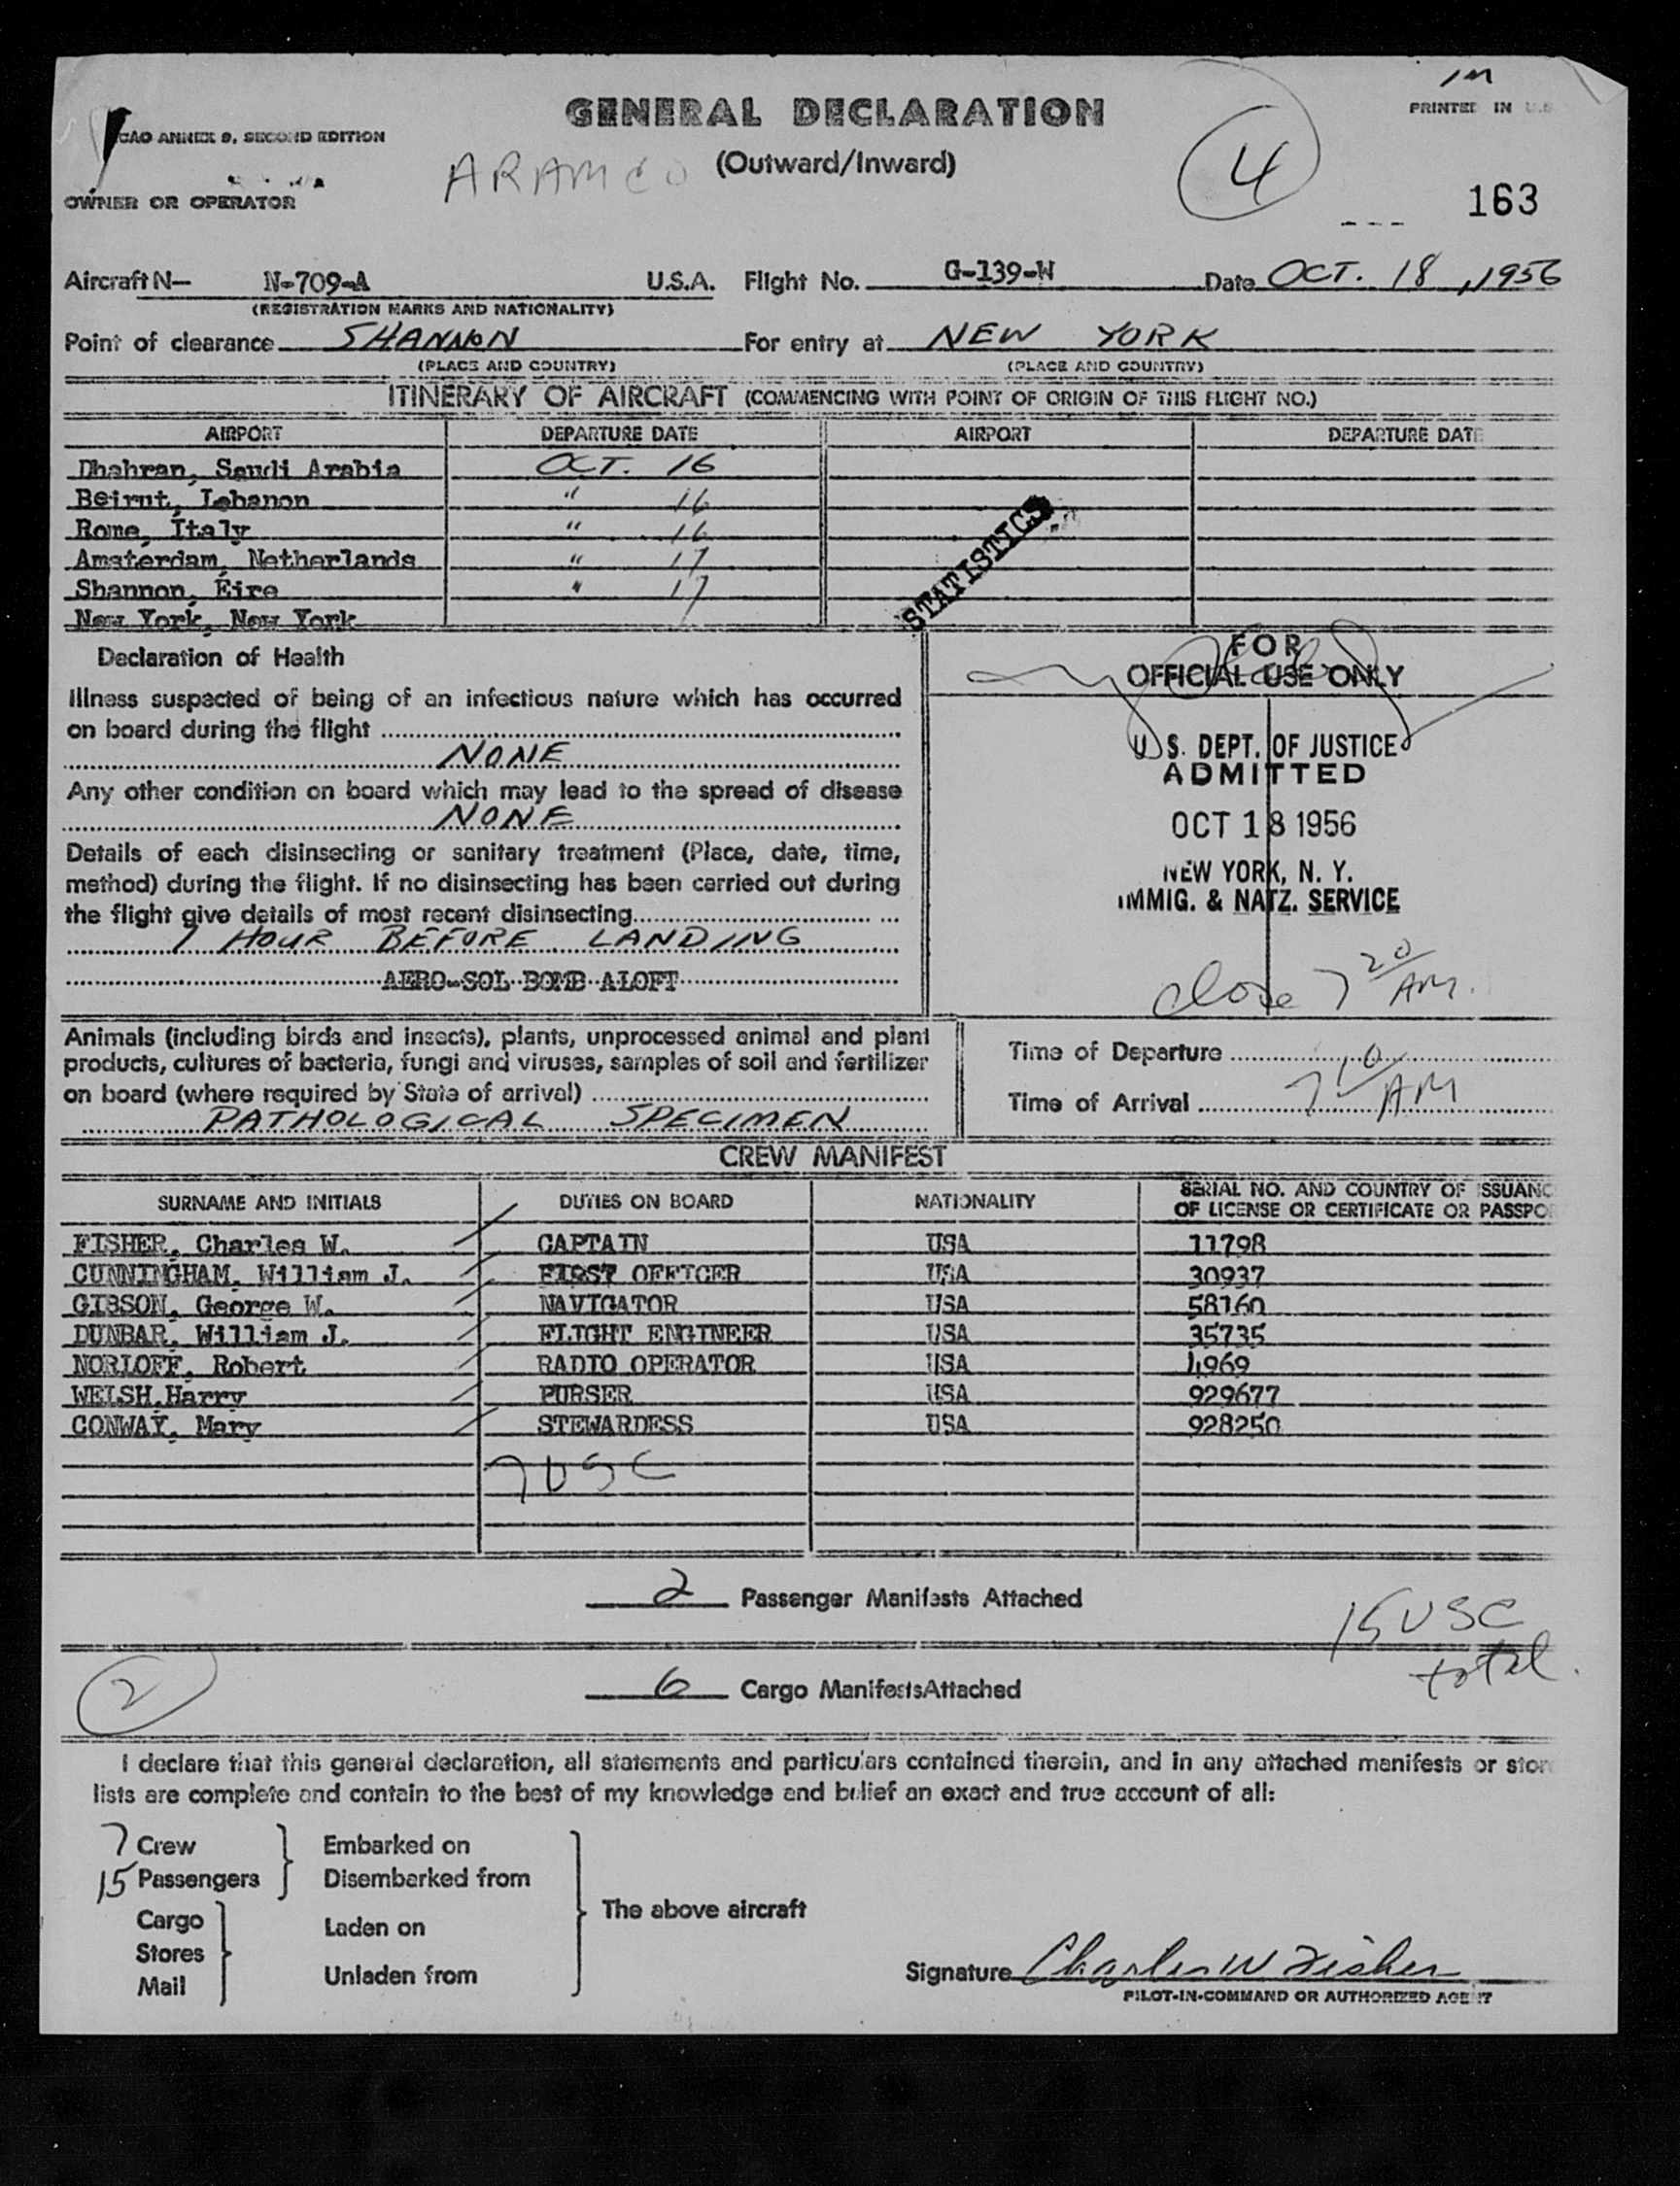 GENERAL DECLARATION
(Outward/Inward)
IN
PRINTED IN U.S.
ICAO ANNEX 9, SECOND EDITION
ARAMCO
4
OWNER OR OPERATOR
163
Aircraft N— N-709-A U.S.A. Flight No. G-139-W Date OCT. 18, 1956
(REGISTRATION MARKS AND NATIONALITY)
Point of clearance SHANNON For entry at NEW YORK
(PLACE AND COUNTRY) (PLACE AND COUNTRY)
ITINERARY OF AIRCRAFT (COMMENCING WITH POINT OF ORIGIN OF THIS FLIGHT NO.)
AIRPORT DEPARTURE DATE AIRPORT DEPARTURE DATE
Dhahran, Saudi Arabia OCT. 16
Beirut, Lebanon " 16
Rome, Italy " 16
Amsterdam, Netherlands " 17
Shannon, Eire " 17
New York, New York
STATISTICS
Declaration of Health
Illness suspected of being of an infectious nature which has occurred
on board during the flight
NONE
Any other condition on board which may lead to the spread of disease
NONE
Details of each disinsecting or sanitary treatment (Place, date, time,
method) during the flight. If no disinsecting has been carried out during
the flight give details of most recent disinsecting
1 HOUR BEFORE LANDING
AERO-SOL BOMB ALOFT
FOR
OFFICIAL USE ONLY
U.S. DEPT. OF JUSTICE
ADMITTED
OCT 18 1956
NEW YORK, N. Y.
IMMIG. & NATZ. SERVICE
Close 7 20 AM.
Animals (including birds and insects), plants, unprocessed animal and plant
products, cultures of bacteria, fungi and viruses, samples of soil and fertilizer
on board (where required by State of arrival)
PATHOLOGICAL SPECIMEN
Time of Departure
Time of Arrival 7 10 AM
CREW MANIFEST
SURNAME AND INITIALS DUTIES ON BOARD NATIONALITY SERIAL NO. AND COUNTRY OF ISSUANC
OF LICENSE OR CERTIFICATE OR PASSPO
FISHER, Charles W. CAPTAIN USA 11798
CUNNINGHAM, William J. FIRST OFFICER USA 30937
GIBSON, George W. NAVIGATOR USA 58160
DUNBAR, William J. FLIGHT ENGINEER USA 35735
NORLOFF, Robert RADIO OPERATOR USA 4969
WELSH,Harry PURSER USA 929677
CONWAY, Mary STEWARDESS USA 928250
7 USC
2 Passenger Manifests Attached
15 USC
total.
2
6 Cargo Manifests Attached
I declare that this general declaration, all statements and particulars contained therein, and in any attached manifests or stor
lists are complete and contain to the best of my knowledge and belief an exact and true account of all:
7 Crew Embarked on
15 Passengers Disembarked from
The above aircraft
Cargo Laden on
Stores
Mail Unladen from
Signature Charles W Fisher
PILOT-IN-COMMAND OR AUTHORIZED AGENT